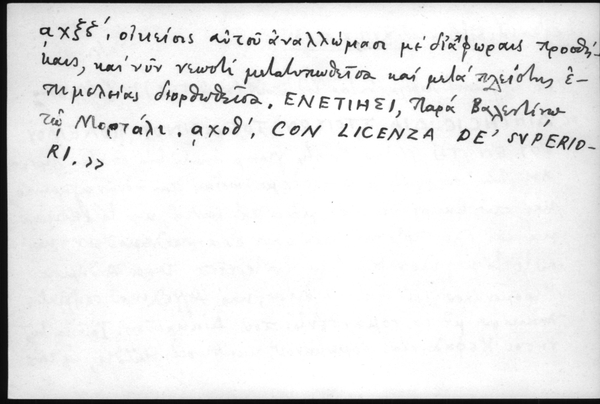 αχξδ´, οἰκείοις αὐτοῦ ἀναλλώμασι μὲ διαφώραις προσθή-
καις, καὶ νῦν νεωστὶ μετατυπωθεῖσα καὶ μετὰ πλείστης ἐ-
πιμελείας διορθωθεῖσα. ΕΝΕΤΙΗΣΙ, Παρὰ Βαλεντίνῳ
τῷ Μορτάλι. αχοθ´, CON LICENZA DE' SVPERIO-
RI. >>